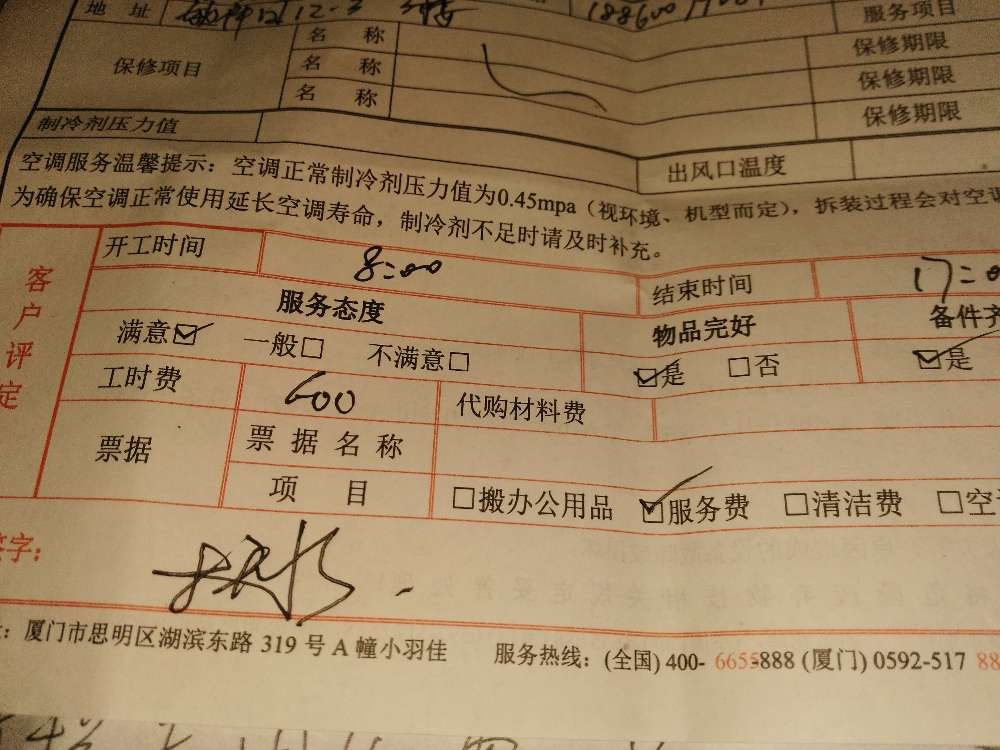 地 址 12-3 服务项目
保修项目 名 称 保修期限
名 称 保修期限
名 称 保修期限
制冷剂压力值 出风口温度
空调服务温馨提示：空调正常制冷剂压力值为0.45mpa（视环境、机型而定），拆装过程会对空调
为确保空调正常使用延长空调寿命，制冷剂不足时请及时补充。
客户评定
开工时间 8:00 结束时间 17:0
服务态度 物品完好 备件齐
满意☑ 一般□ 不满意□ ☑是 □否 ☑是
工时费 600 代购材料费
票据 票据名称
项 目 □搬办公用品 ☑服务费 □清洁费 □空
签字：
厦门市思明区湖滨东路 319 号 A 幢小羽佳 服务热线：(全国) 400- 6655-888 (厦门) 0592-517 88